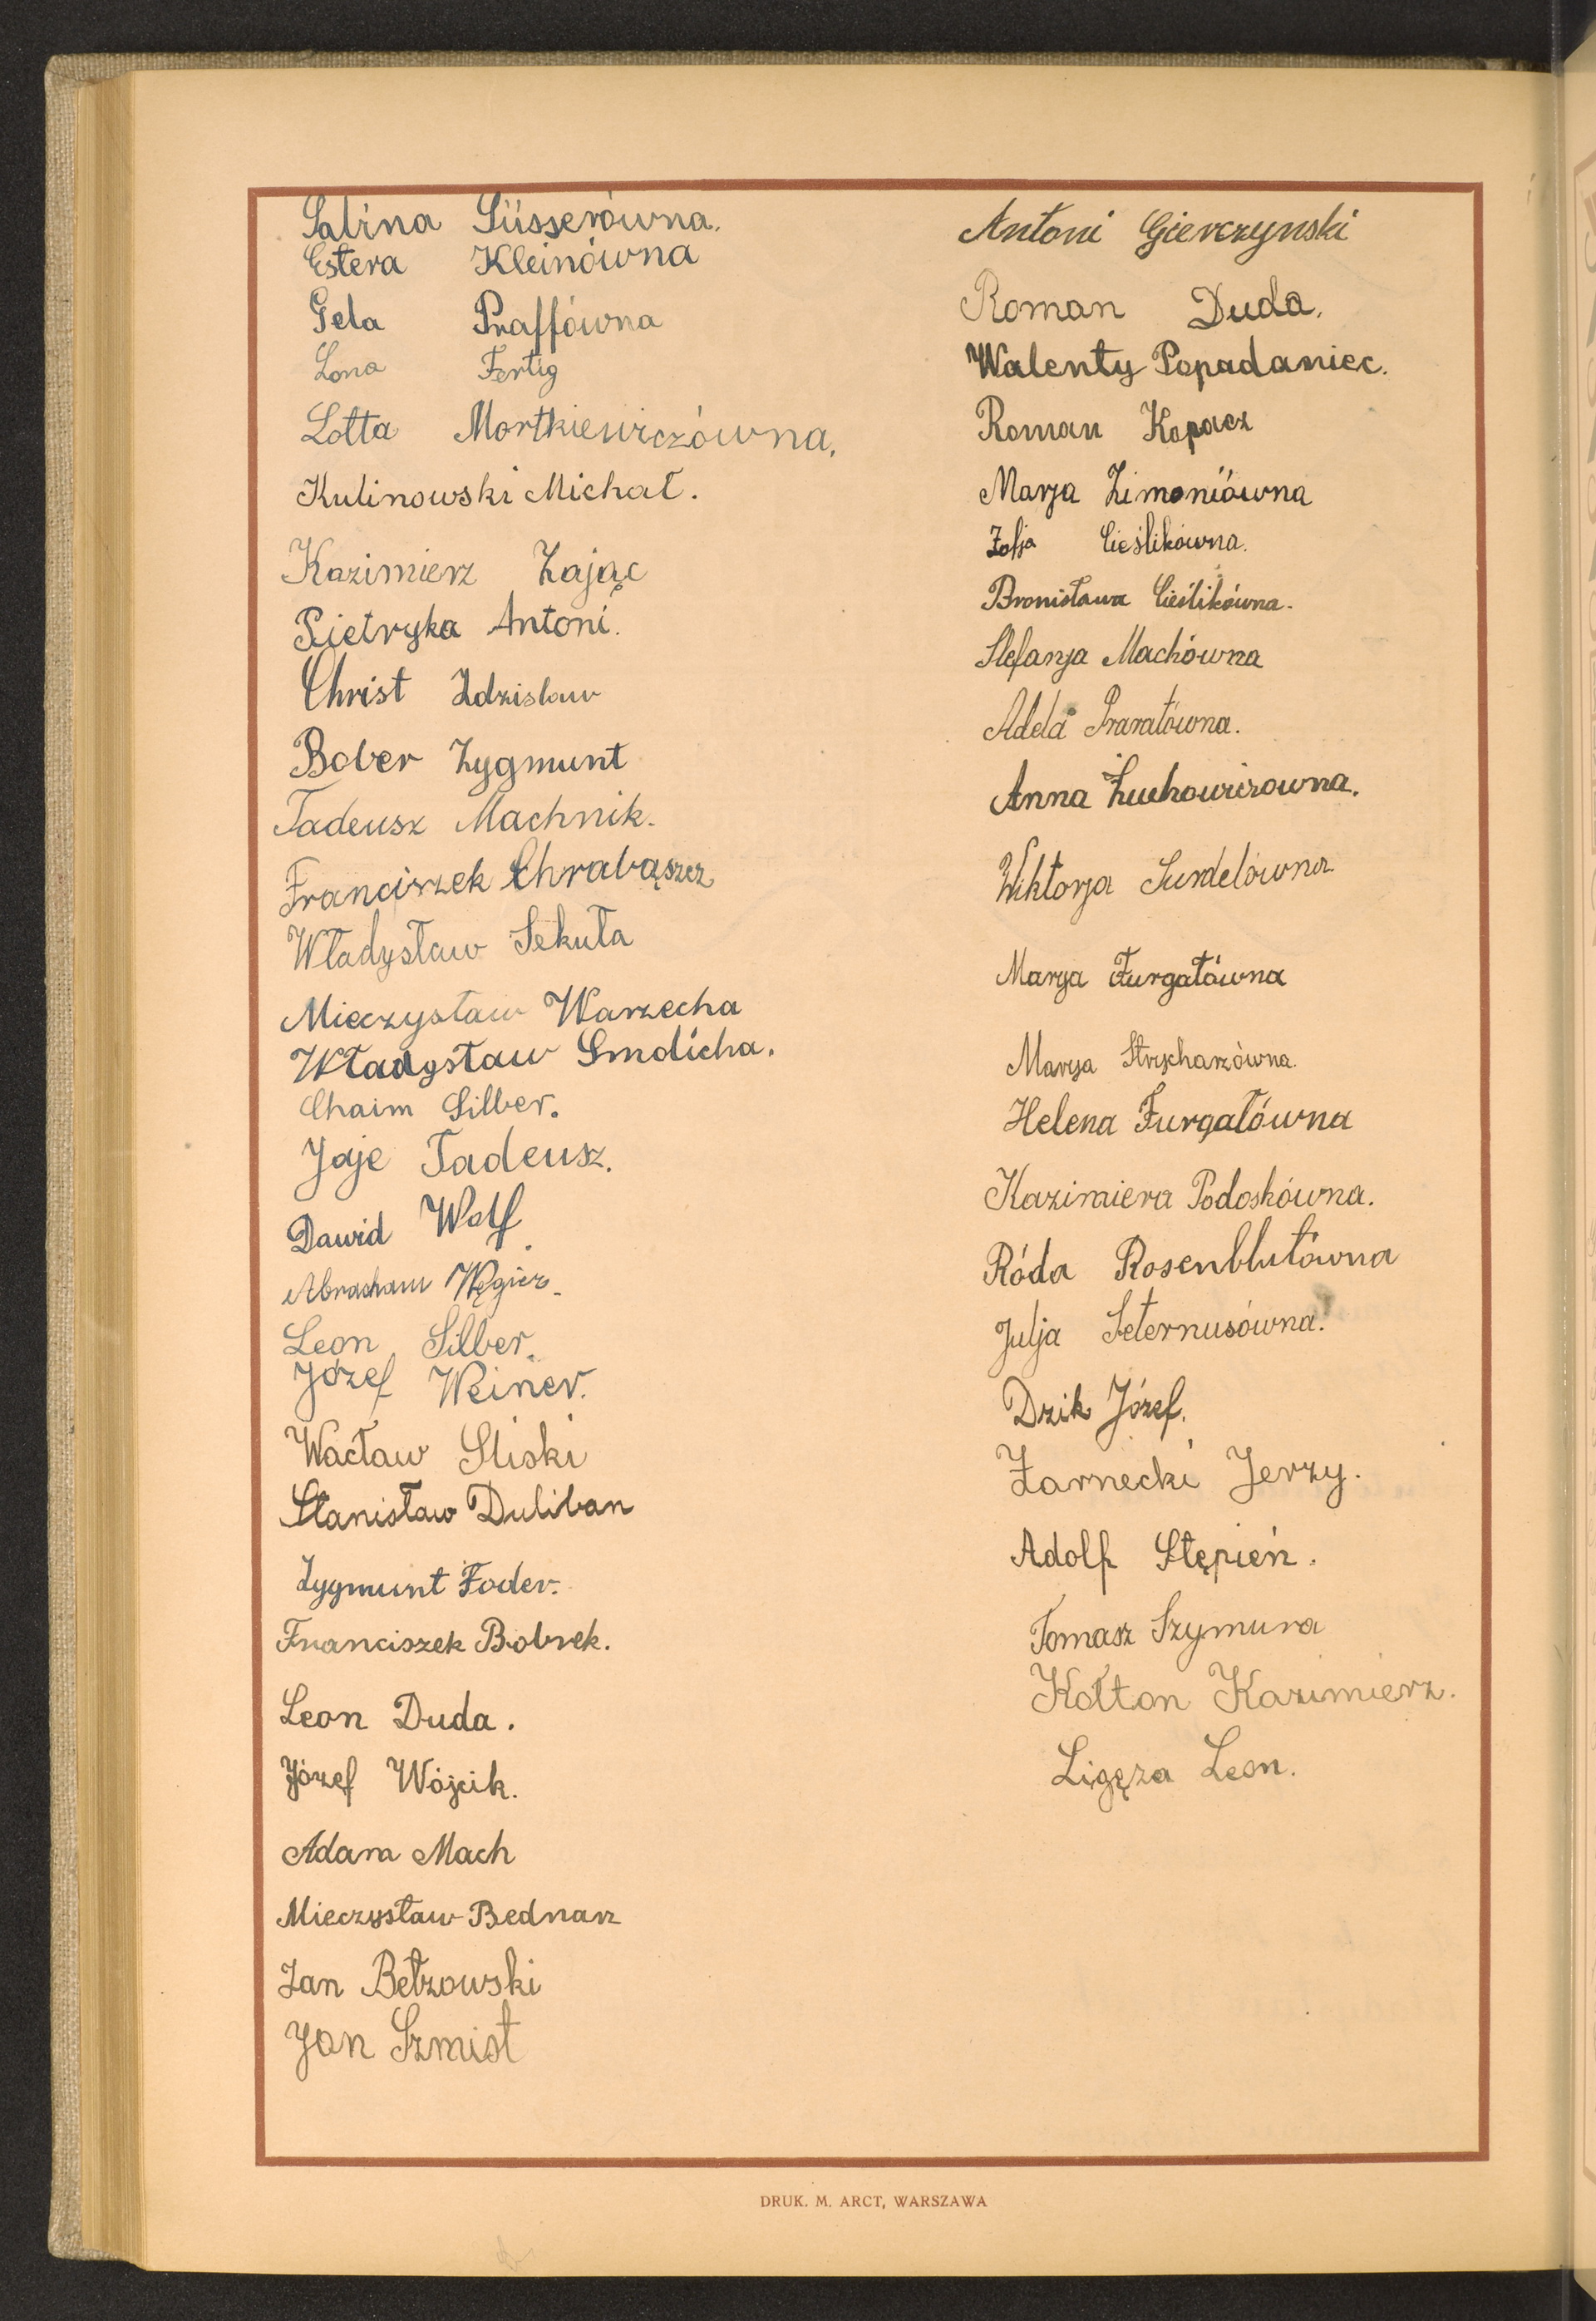 Sabina Süsserówna.
Estera Kleinówna
Gela Praffówna
Lona Fertig
Lotta Mortkiewiczówna.
Kulinowski Michał.
Kazimierz Zając
Pietryka Antoni.
Christ Zdzisław
Bober Zygmunt
Tadeusz Machnik.
Franciszek Chrabąszcz
Władysław Sekuła
Mieczysław Warzecha
Władysław Smolicha.
Chaim Silber.
Jaje Tadeusz.
Dawid Wolf
Abracham Węgier.
Leon Silber.
Józef Weiner.
Wacław Śliski
Stanisław Duliban
Zygmunt Foder.
Franciszek Bobrek.
Leon Duda.
Józef Wójcik.
Adam Mach
Mieczysław Bednarz
Jan Betzowski
Jan Szmist
Antoni Gierczynski
Roman Duda.
Walenty Popadaniec.
Roman Kopacz
Marja Zimoniówna
Zofja Cieślikówna.
Bronisława Cieślikówna.
Stefanja Machówna
Adela Praratówna.
Anna Żuchowiczowna.
Wiktorja Surdelówna
Marja Furgałówna
Marya Strycharzówna.
Helena Furgałówna
Kazimiera Podoskówna.
Róda Rosenblutówna
Julja Seternusówna.
Dzik Józef.
Żarnecki Jerzy.
Adolf Stępień.
Tomasz Szymura
Kołton Kazimierz.
Ligęza Leon.
DRUK. M. ARCT, WARSZAWA